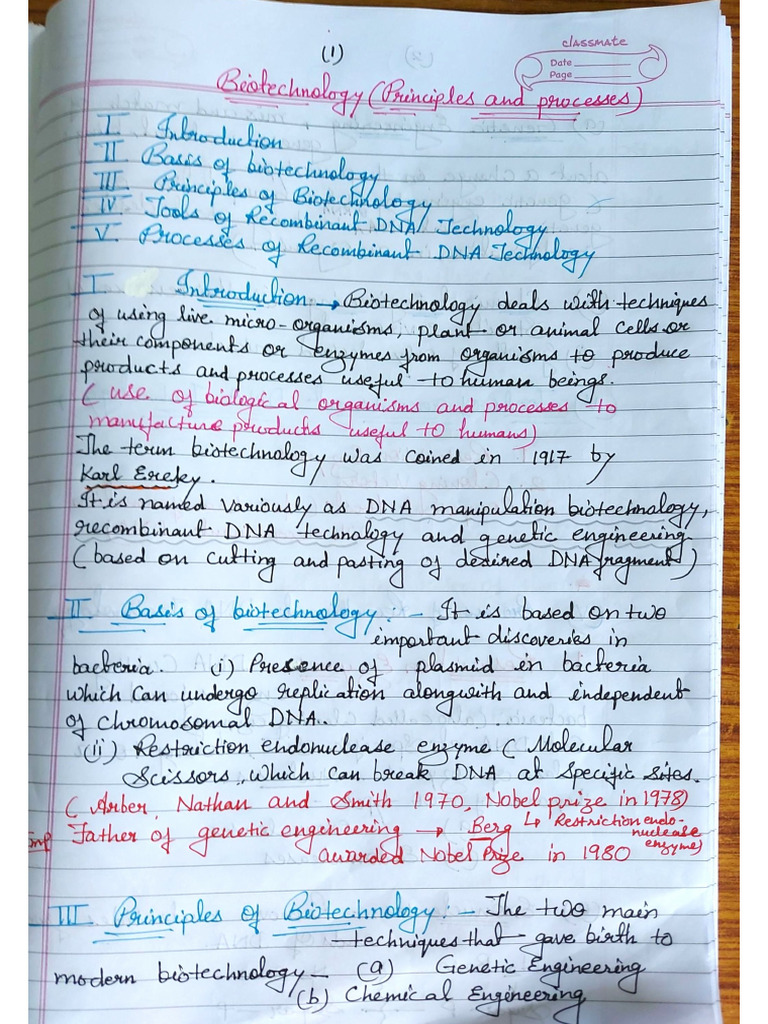 (1)
classmate
Date
Page
Biotechnology (Principles and processes)
I. Introduction
II Basis of biotechnology
III. Principles of Biotechnology
IV. Tools of Recombinant DNA Technology
V. Processes of Recombinant DNA Technology
I. Introduction → Biotechnology deals with techniques
of using live micro-organisms, plant or animal cells or
their components or enzymes from organisms to produce
products and processes useful to human beings.
(use of biological organisms and processes to
manufacture products useful to humans)
The term biotechnology was coined in 1917 by
Karl Ereky.
It is named variously as DNA manipulation biotechnology,
recombinant DNA technology and genetic engineering
(based on cutting and pasting of desired DNA fragment)
II Basis of biotechnology :- It is based on two
important discoveries in
bacteria. (i) Presence of plasmid in bacteria
which can undergo replication alongwith and independent
of chromosomal DNA.
(ii) Restriction endonuclease enzyme (Molecular
Scissors, which can break DNA at specific sites.
(Arber, Nathan and Smith 1970, Nobel prize in 1978)
↳ Restriction endo-
nuclease
enzyme)
Imp Father of genetic engineering → Berg
awarded Nobel Prize in 1980
III Principles of Biotechnology :- The two main
techniques that gave birth to
modern biotechnology - (a) Genetic Engineering
(b) Chemical Engineering